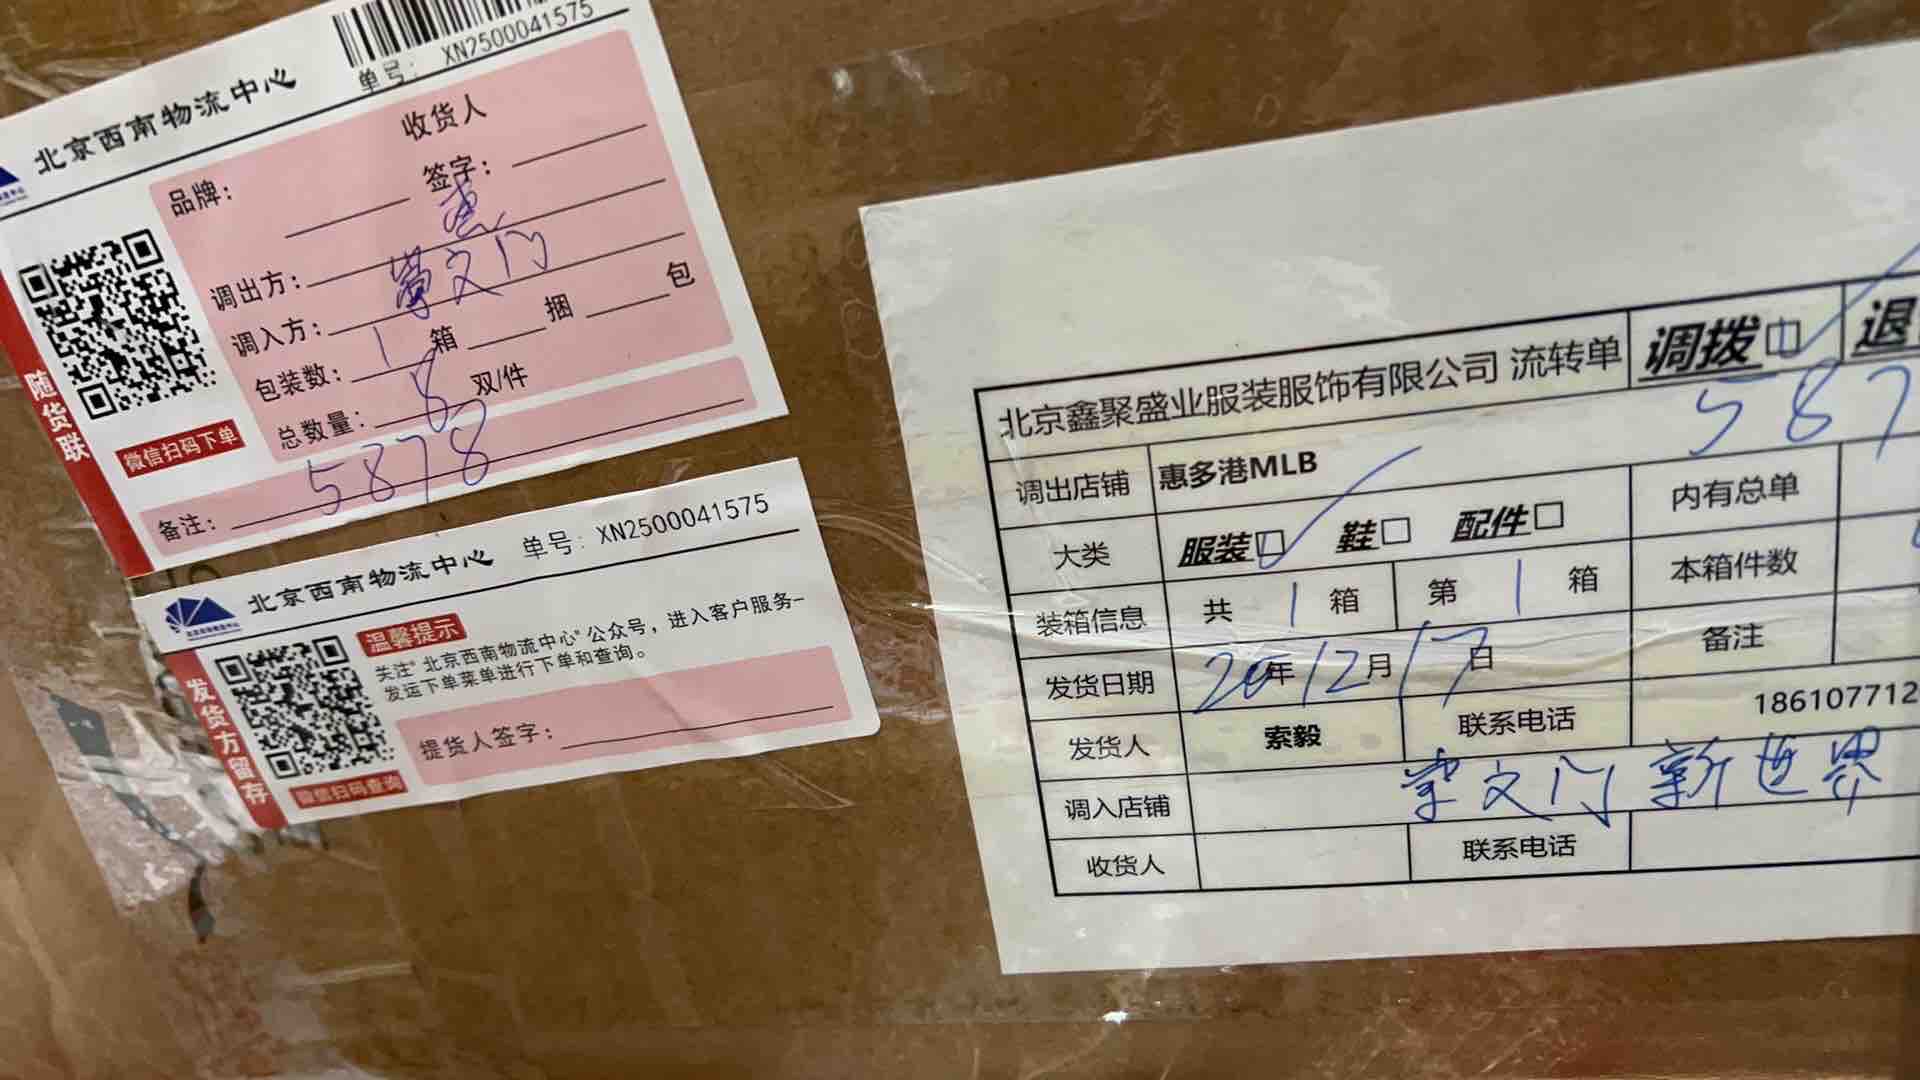 单号: XN2500041575
北京西南物流中心
收货人
品牌: 签字:
调出方: 惠
调入方: 崇文门
包装数: 1 箱 捆 包
总数量: 8 双/件
备注: 5878
随货联
微信扫码下单
北京西南物流中心 单号: XN2500041575
温馨提示
关注"北京西南物流中心"公众号，进入客户服务-
发运下单菜单进行下单和查询。
提货人签字:
发货方留存
微信扫码查询
北京鑫聚盛业服装服饰有限公司 流转单 调拨□ 退
587
调出店铺 惠多港MLB 内有总单
大类 服装□ 鞋□ 配件□ 本箱件数
装箱信息 共 1 箱 第 1 箱 备注
发货日期 20年12月17日
发货人 索毅 联系电话 186107712
调入店铺 崇文门新世界
收货人 联系电话